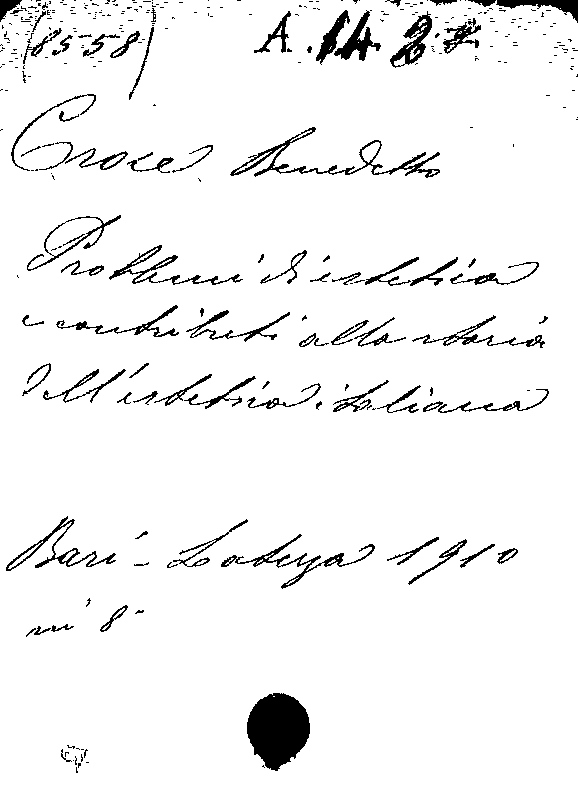 (8558) A.14.2.
Croce Benedetto
Problemi di estetica
e contributi alla storia
dell'estetica italiana
Bari - Laterza 1910
in 8°